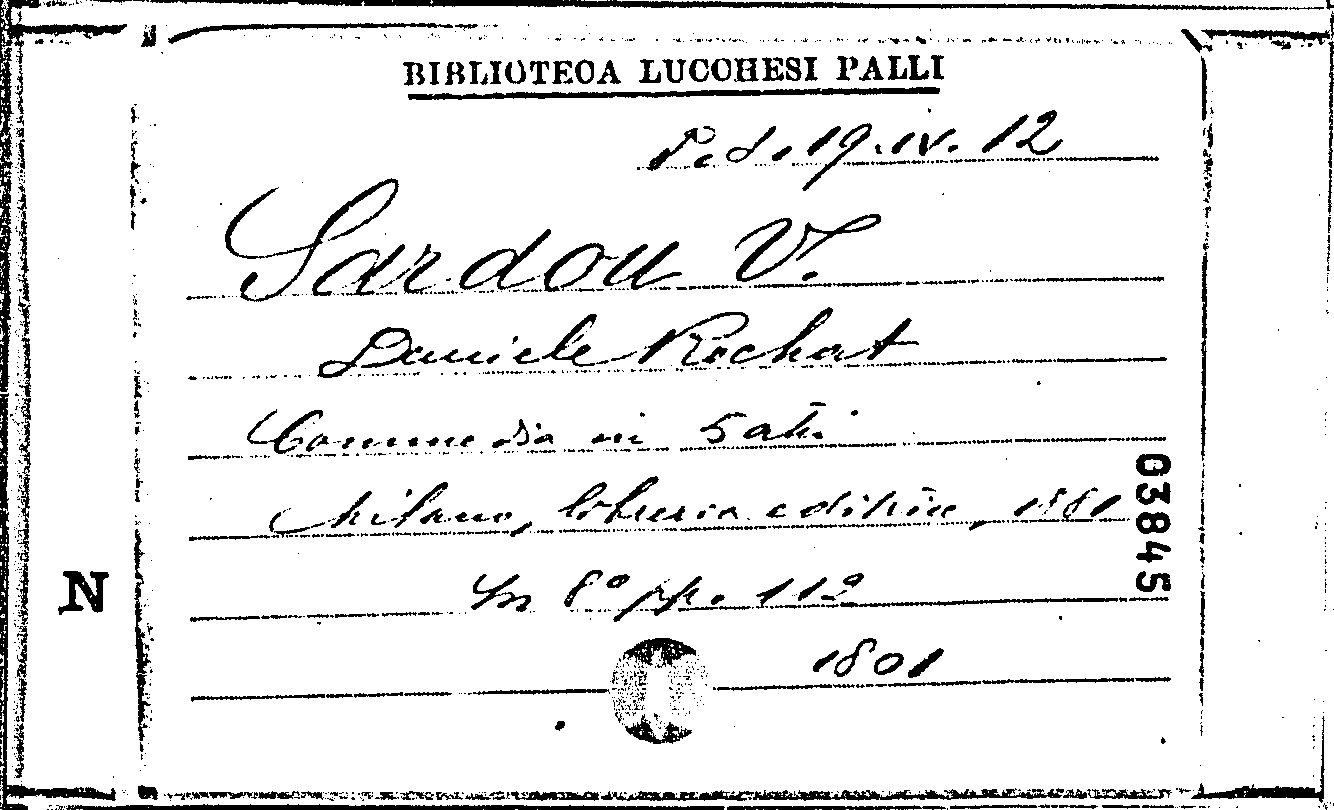 BIBLIOTECA LUCCHESI PALLI
P.d. 19.IV.12
Sardou V.
Daniele Rochat
Commedia in 5 atti
Milano, libreria editrice, 1881
03845
N
In 8° pp. 112
1801